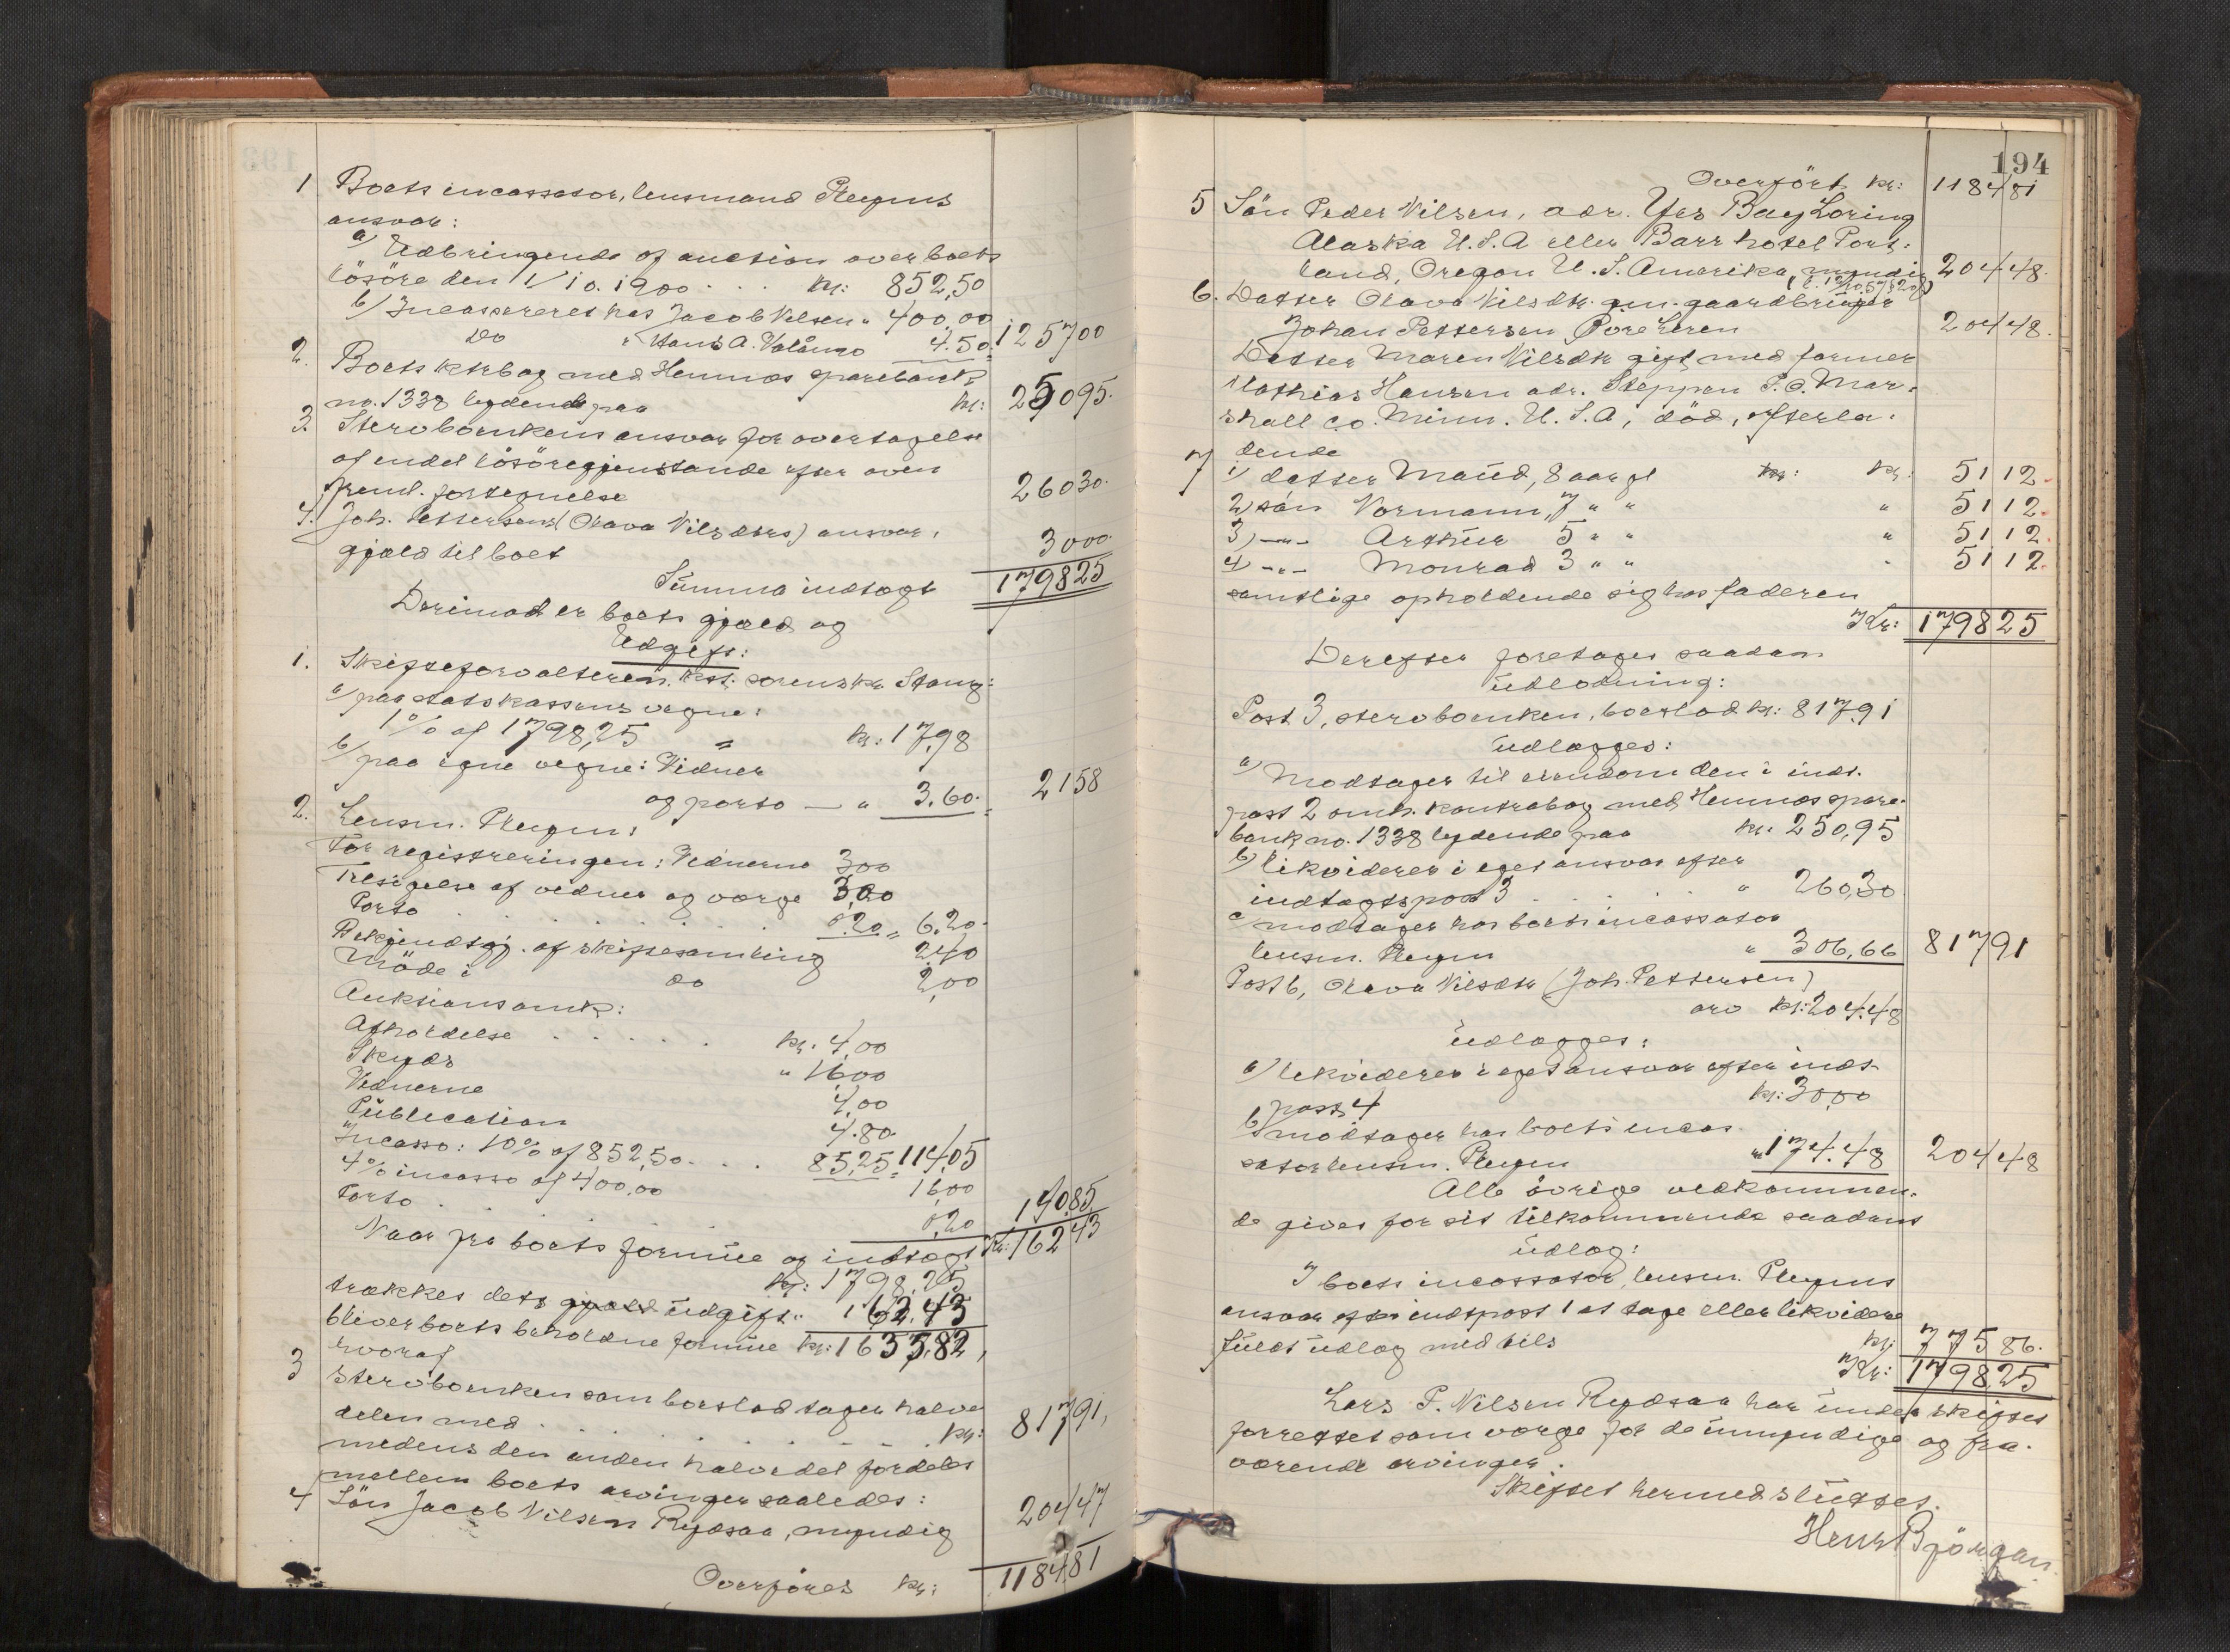 1 Boets incassator, lensmand Plegms
ansvar:
a) Udbringende af auction over boets
lösöre den 1/10.1900 . . . kr: 852,50
b) Incassereret hos Jacob Nilsen " 400,00
Do " Hans A. Valåmo 4.50 125700
2. Boets kstrbog med Hemnæs sparebank
no. 1338 lydende paa kr: 25095.
3. Stervboenkens ansvar for overtagelse
af endel lösöregjenstande efter oven
freml. fortegnelse 26030.
4. Joh. Pettersens (Olava Nilsdtrs) ansvar,
gjæld til boet 3000.
Summa indtægt 179825
Derimod er boets gjæld og
Udgift:
1. Skifteforvalteren. Kst. sorenskr. Stang:
a) paa statskassens vegne:
1% af 1798,25 = kr: 17,98
b) paa egne vegne: Vidner
og porto — " 3.60. 2158
2. Lensm. Plegm:
For registreringen: Vidnerne 300
Tilsigelse af vidner og værge 3,00
Porto . . . . . 0.20 " 6.20.
Bekjendtgj. af skiftesamling 2,40
Möde i do 2,00
Auktionsomk:
Afholdelse . . . . . kr: 4,00
Skyds " 1600
Vidnerne 4,00
Publication 4.80
Incasso: 10% af 852,50 . . . 85,25 = 114,05
4% incasso af 400,00 16,00
Porto . 0,20 14085
Naar fra boets formue og indtægt Kr: 16243
kr: 1798,25
trækkes dets gjæld udgift " 162.43
bliver boets beholdne formue kr: 1635,82,
hvoraf
3 Stervboenken som boeslod tager halve
delen med . . . . . kr: 81791,
medens den anden halvdel fordeles
mellem boets arvinger saaledes:
4 Sön Jacob Nilsen Rydsaa, myndig 20447
Overföres kr: 118481
194
Overfört kr: 118481
5 Sön Peder Nilsen, adr. Yes Bay Loring
Alaska U.S.A eller Barr hotel Port-
land, Oregon U.S. Amerika, myndig 20448.
6. Datter Olava Nilsdtr. gm. gaardbruger
Johan Pettersen Röreleren 20448.
Datter Maren Nilsdtr gift med farmer
Mathias Hansen adr. Steppen P.O. Mar-
shall co. Minn. U.S.A; död, efterla-
dende
7 1) datter Maud, 8 aar gl kr: kr: 5112.
2) sön Normann, 7 " " " 5112.
3) —"— Arthur 5 " " " 5112.
4) —"— Monrad 3 " " " 5112.
samtlige opholdende sig hos faderen
Kr: 179825
Derefter foretages saadan
udlodning:
Post 3, stervboenken, boeslod kr: 817,91
udlægges:
a) Modtager til eiendom den i indt.
post 2 omh. kontrabog med Hemnæs spare-
bank no. 1338 lydende paa kr: 250,95
b) likviderer i eget ansvar efter
indtægtspost 3 . . . . " 260,30
c) modtager hos boets incassator
lensm. Plegm " 306,66 81791
Post 6, Olava Nilsdtr (Joh. Pettersen)
arv kr: 204.48
udlægges:
a) likviderer i eget ansvar efter indt-
post 4 kr: 30,00
b) modtager hos boets incas-
sator lensm. Plegm " 174.48 20448
Alle övrige vedkommen-
de gives for sit tilkommende saadant
udlæg:
I boets incassator, lensm. Plegms
ansvar efter indtpost 1 at tage eller likvidere
fuldt udlæg med tils kr: 77586.
Kr: 179825
Lars P. Nilsen Rydsaa har under skiftet
forrettet som værge for de umyndige og fra-
værende arvinger.
Skiftet hermed sluttet.
Henr Björgan